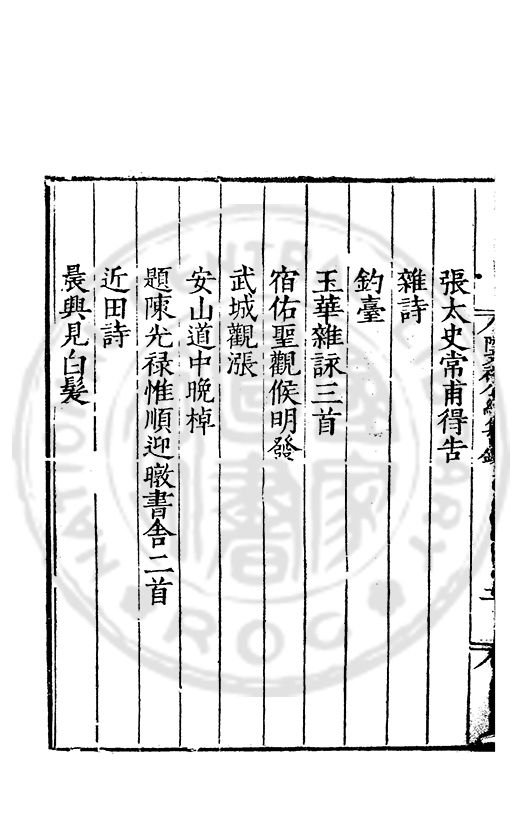 張太史常甫得告
雜詩
釣臺
玉華雜詠三首
宿佑聖觀候明發
武城觀漲
安山道中晚棹
題陳光禄惟順迎暾書舍二首
近田詩
晨興見白髮